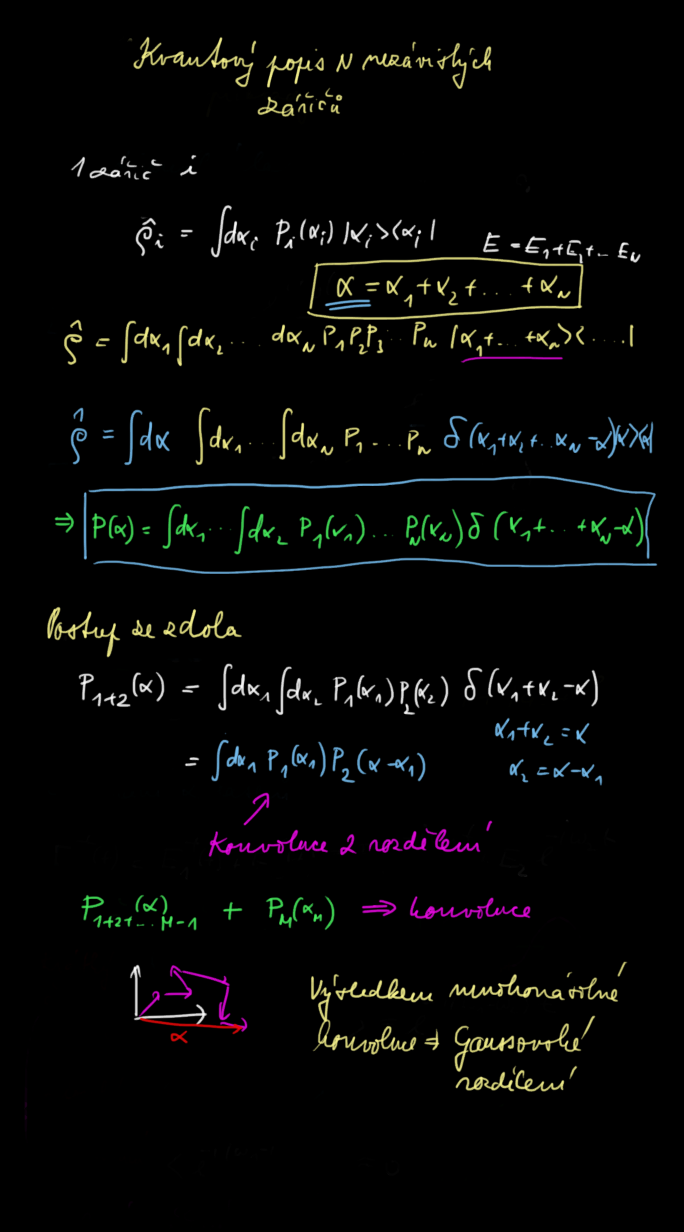 Kvantový popis N nezávislých
zářičů
1 zářič i
ρ̂ᵢ = ∫dαᵢ Pᵢ(αᵢ) |αᵢ><αᵢ|
E = E₁+E₁+... E_N
α = α₁+α₂+...+α_N
ρ̂ = ∫dα₁∫dα₂ ... dα_N P₁P₂P₃ ... P_N |α₁+...+α_N><....|
ρ̂ = ∫dα ∫dα₁...∫dα_N P₁...P_N δ(α₁+α₂+...α_N-α)|α><α|
⇒ P(α) = ∫dα₁...∫dα₂ P₁(α₁)...P_N(α_N) δ(α₁+...+α_N-α)
Postup ze zdola
P₁₊₂(α) = ∫dα₁∫dα₂ P₁(α₁)P₂(α₂) δ(α₁+α₂-α)
α₁+α₂=α
= ∫dα₁ P₁(α₁)P₂(α-α₁)
α₂=α-α₁
Konvoluce 2 rozdělení
P₁₊₂₊...M-1(α) + P_M(α_M) ⇒ konvoluce
α
Výsledkem mnohonásobné
konvoluce ⇒ Gaussovské
rozdělení